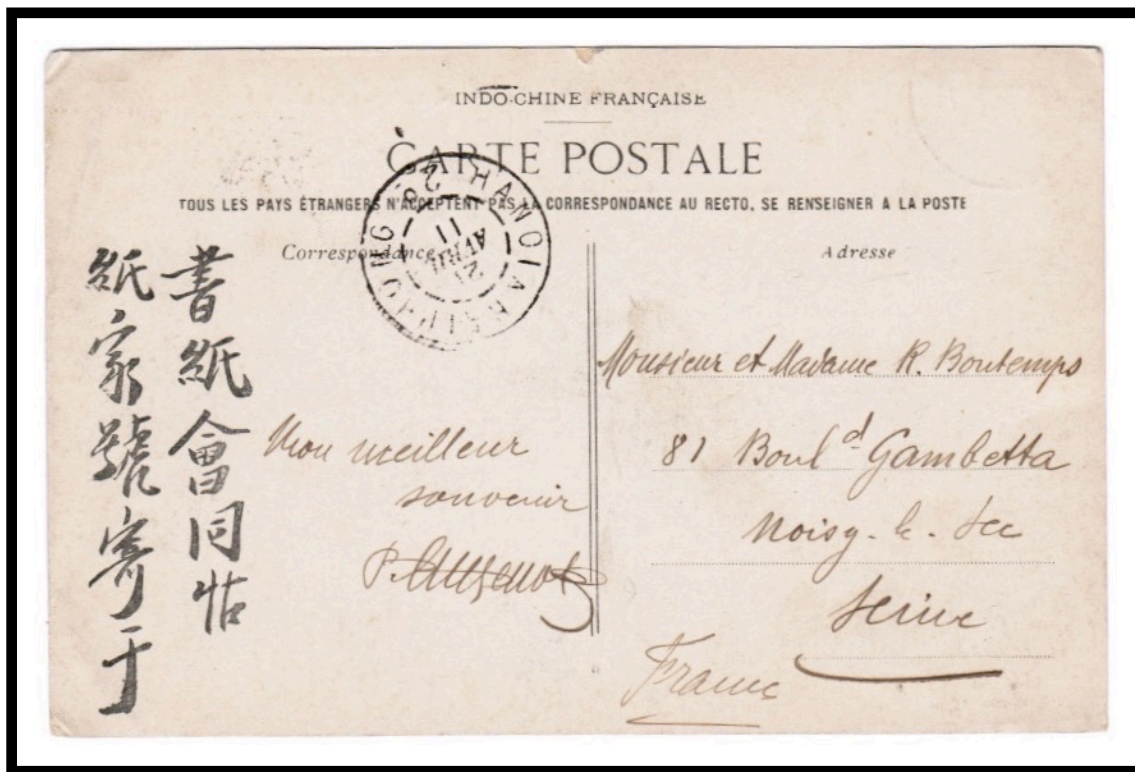 INDO-CHINE FRANÇAISE
CARTE POSTALE
TOUS LES PAYS ÉTRANGERS N'ACCEPTENT PAS LA CORRESPONDANCE AU RECTO, SE RENSEIGNER A LA POSTE
Correspondance
Adresse
HANOI A
21
AVRIL
11
書紙會同帖
紙家號寄于
Mon meilleur
souvenir
Monsieur et Madame R. Bontemps
81 Boul^d Gambetta
Noisy-le-Sec
Seine
France